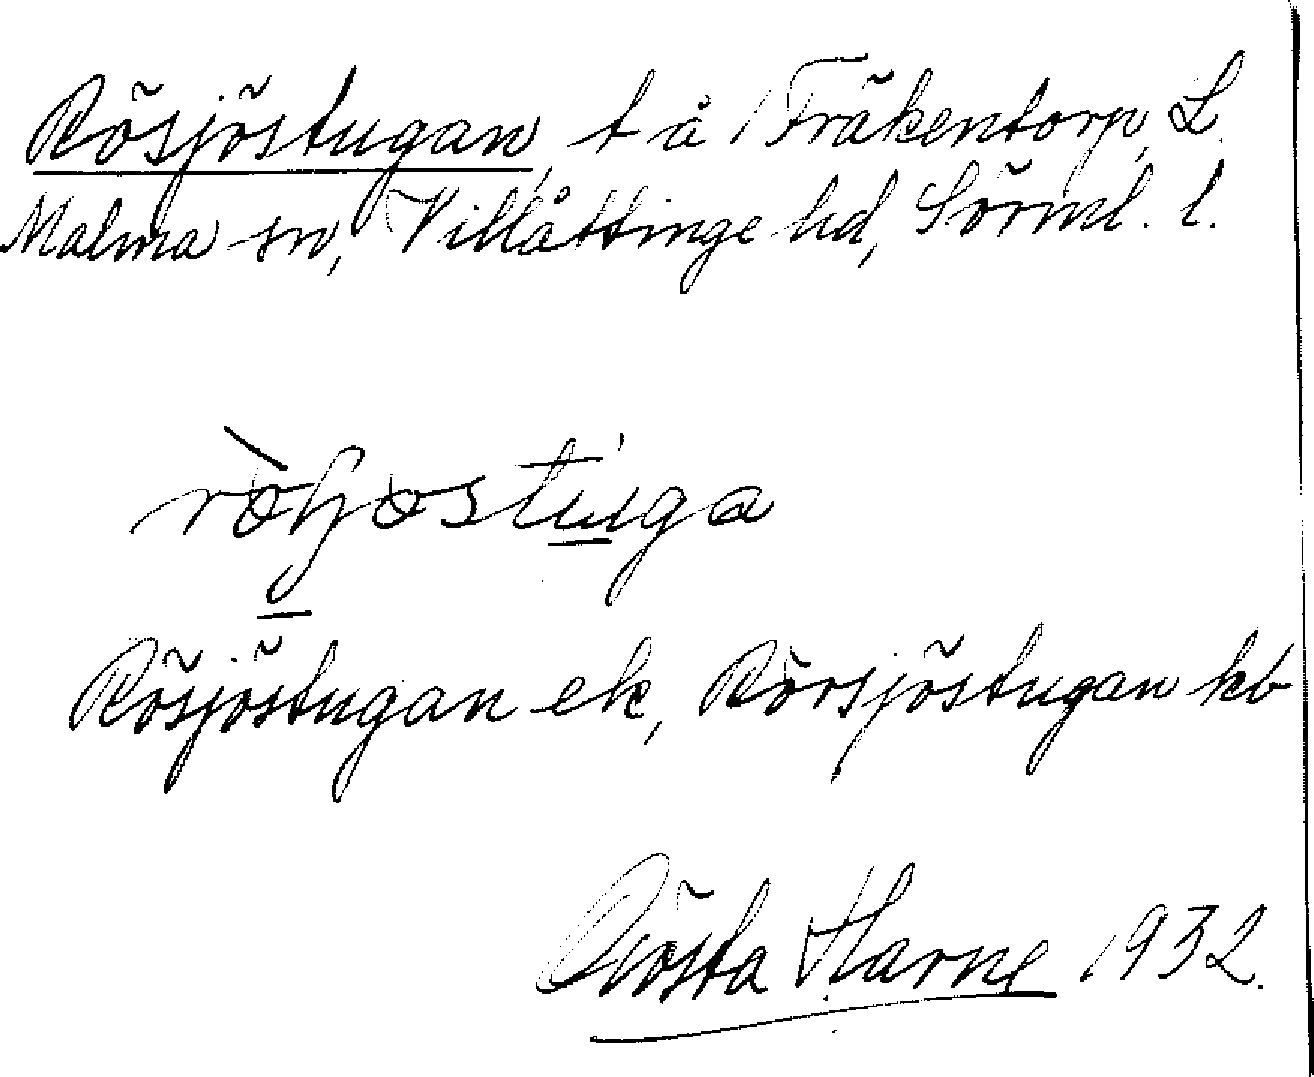 Rösjöstugan, t å Fräkentorp, L.
Malma sn, Villåttinge hd, Sörml. l.
Rösjöstugan ek, Rörsjöstugan kb
Gösta Harne 1932.